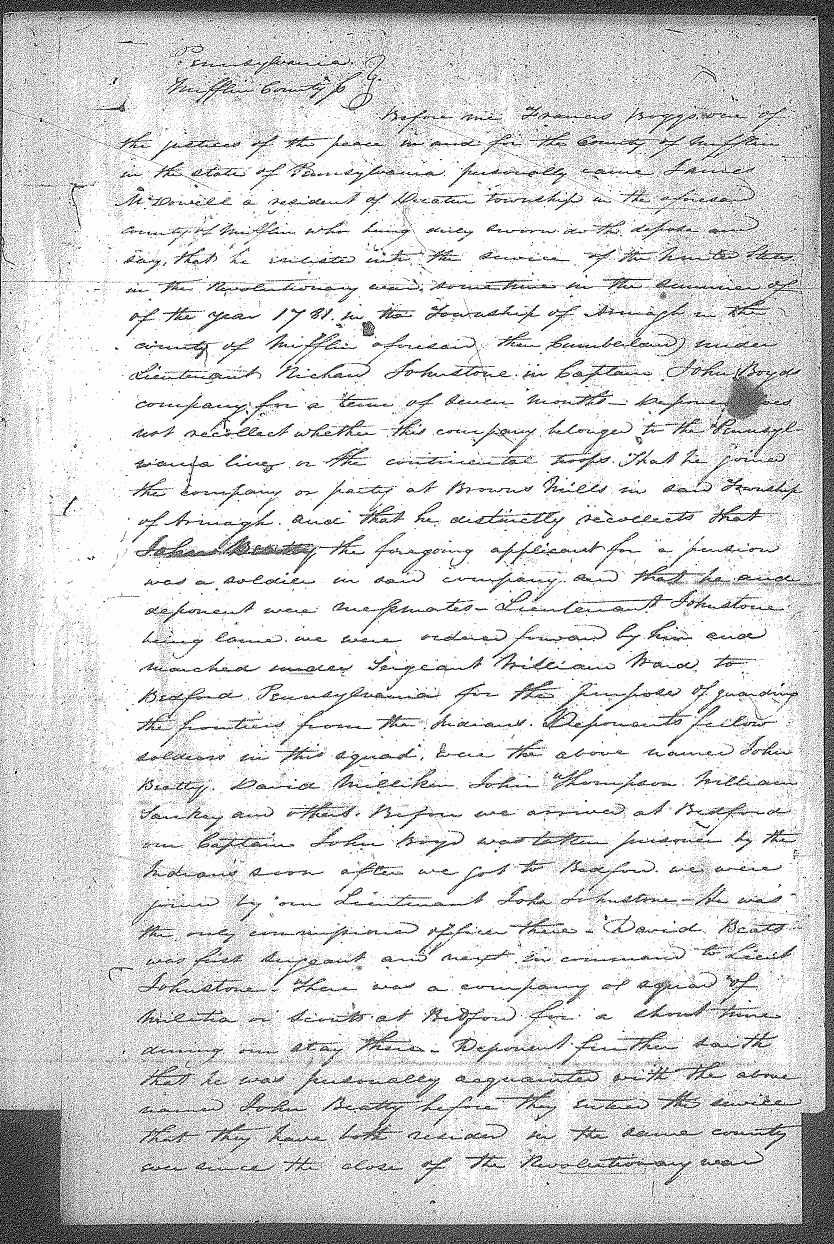 Pennsylvania
Mifflin County ss
Before me Francis Boggs one of
the justices of the peace in and for the County of Mifflin
in the state of Pennsylvania personally came James
McDowell a resident of Decatur township in the aforesaid
county of Mifflin who being duly sworn doth depose and
say, that he enlisted into the service of the United States
in the Revolutionary war, sometime in the summer of
of the year 1781. in the Township of Armagh in the
county of Mifflin aforesaid, then Cumberland) under
Lieutenant Richard Johnstone in Captain John Boyds
company for a term of seven months – Deponent does
not recollect whether this company belonged to the Pennsyl-
vania line, or the continental troops. That he joined
the company or party at Browns Mills in said Township
of Armagh. and that he distinctly recollects that
John Beatty the foregoing applicant for a pension
was a soldier in said company and that he and
deponent were messmates – Lieutenant Johnstone
being lame we were ordered forward by him and
marched under Sergeant William Ward to
Bedford Pennsylvania for the purpose of guarding
the frontiers from the Indians. Deponents fellow
soldiers in this squad, were the above named John
Beatty. David Milliken John Thompson William
Sankey and others. Before we arrived at Bedford
our Captain John Boyd was taken prisoner by the
Indians soon after we got to Bedford. we were
joined by our Lieutenant John Johnstone – He was
the only commissioned officer there – David Beats
was first sergeant and next in command to Lieut
Johnstone – There was a company or squad of
militia or scouts at Bedford for a short time
during our stay there – Deponent further saith
that he was personally acquainted with the above
named John Beatty before they entered the service
that they have both resided in the same county
ever since the close of the Revolutionary war